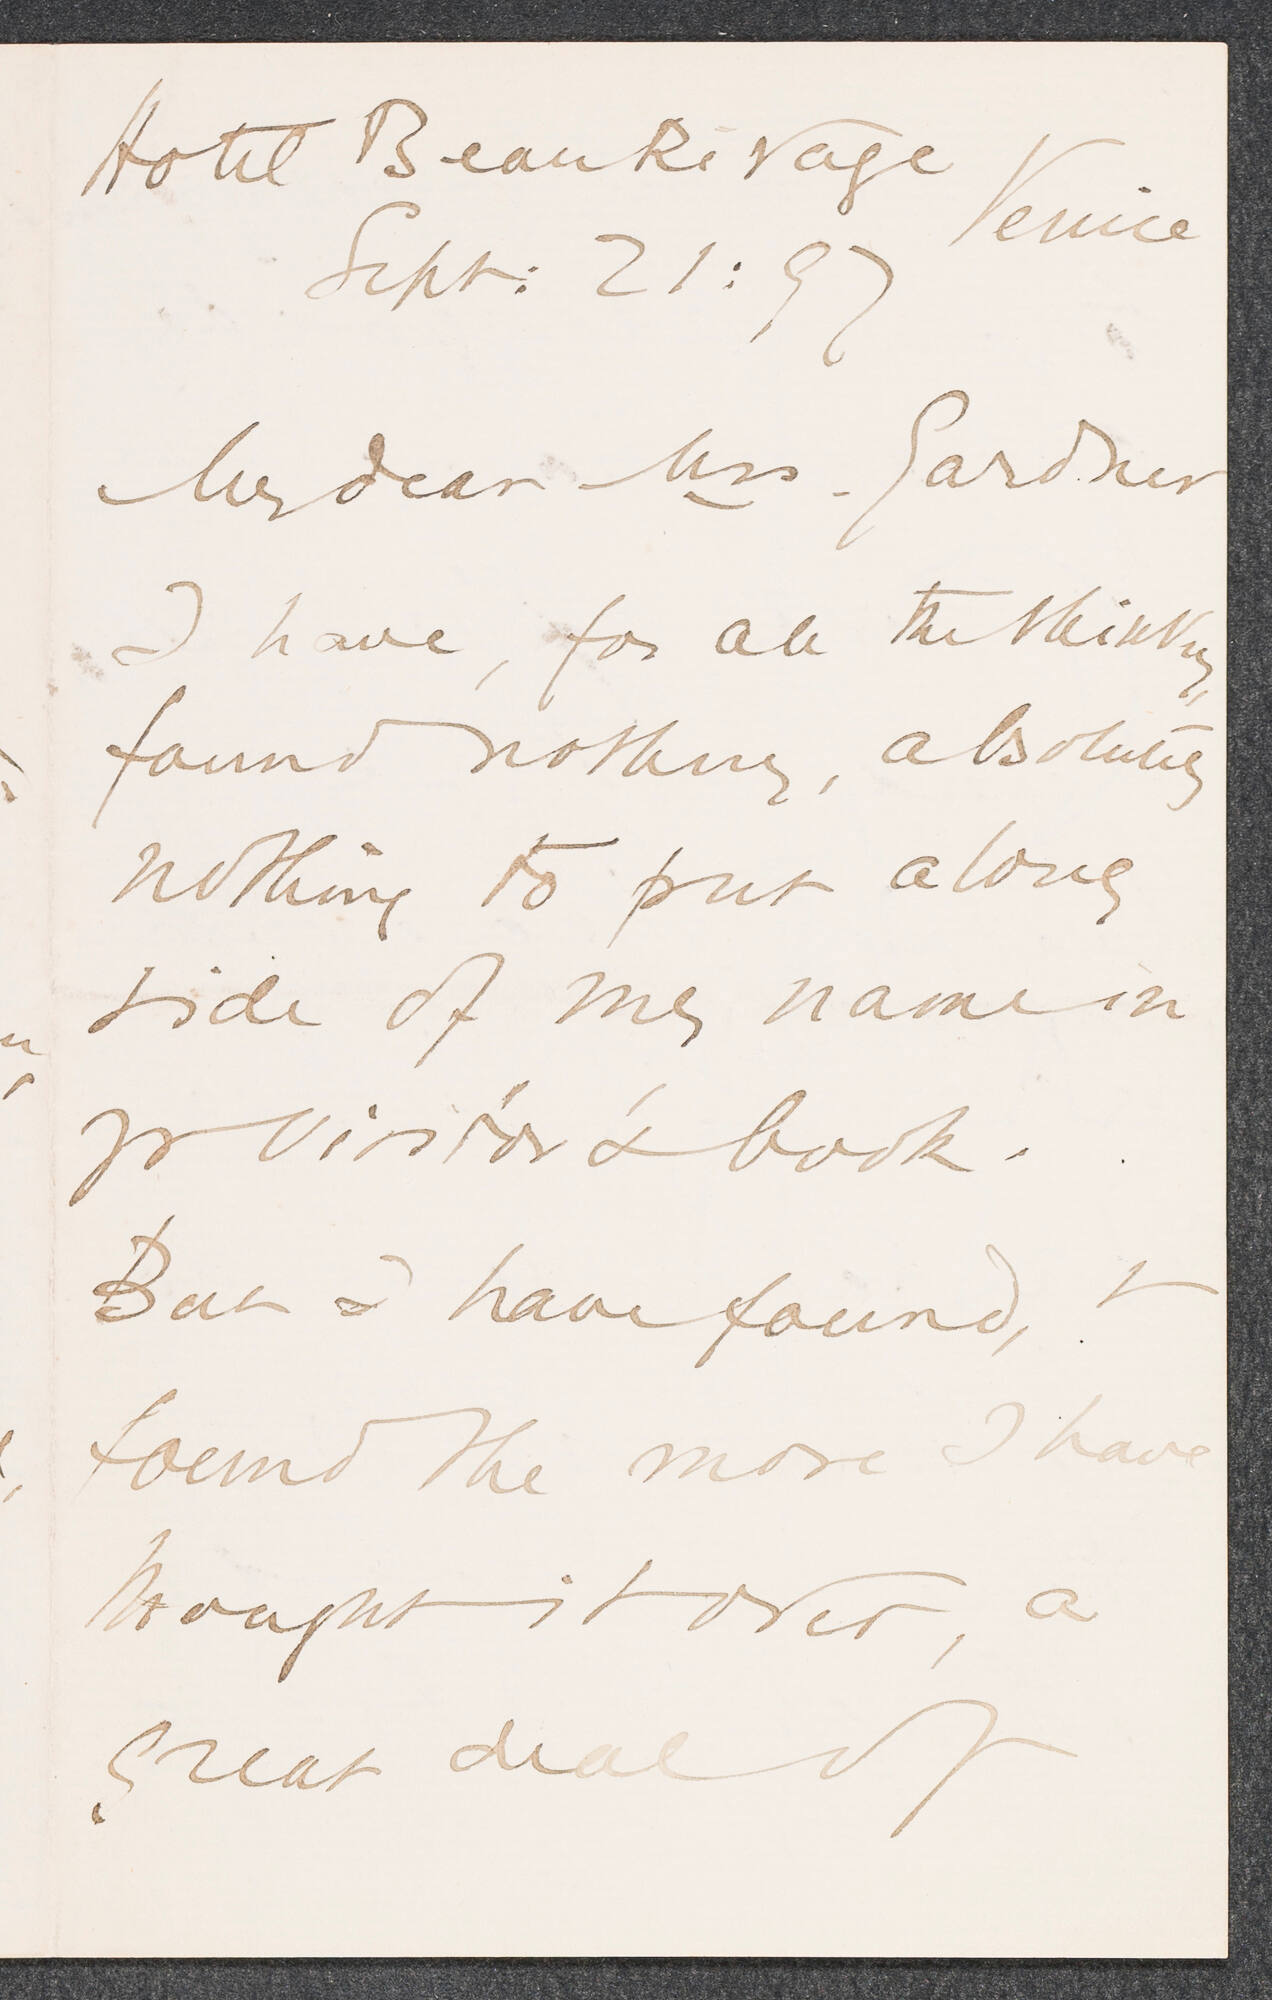 Hotel Beau Rivage
Venice
Sept: 21: 97
My dear Mrs. Gardner
I have, for all the thinking,
found nothing, absolutely
nothing to put along
side of my name in
yr visitor's book.
But I have found, &
found the more I have
thought it over, a
great deal of